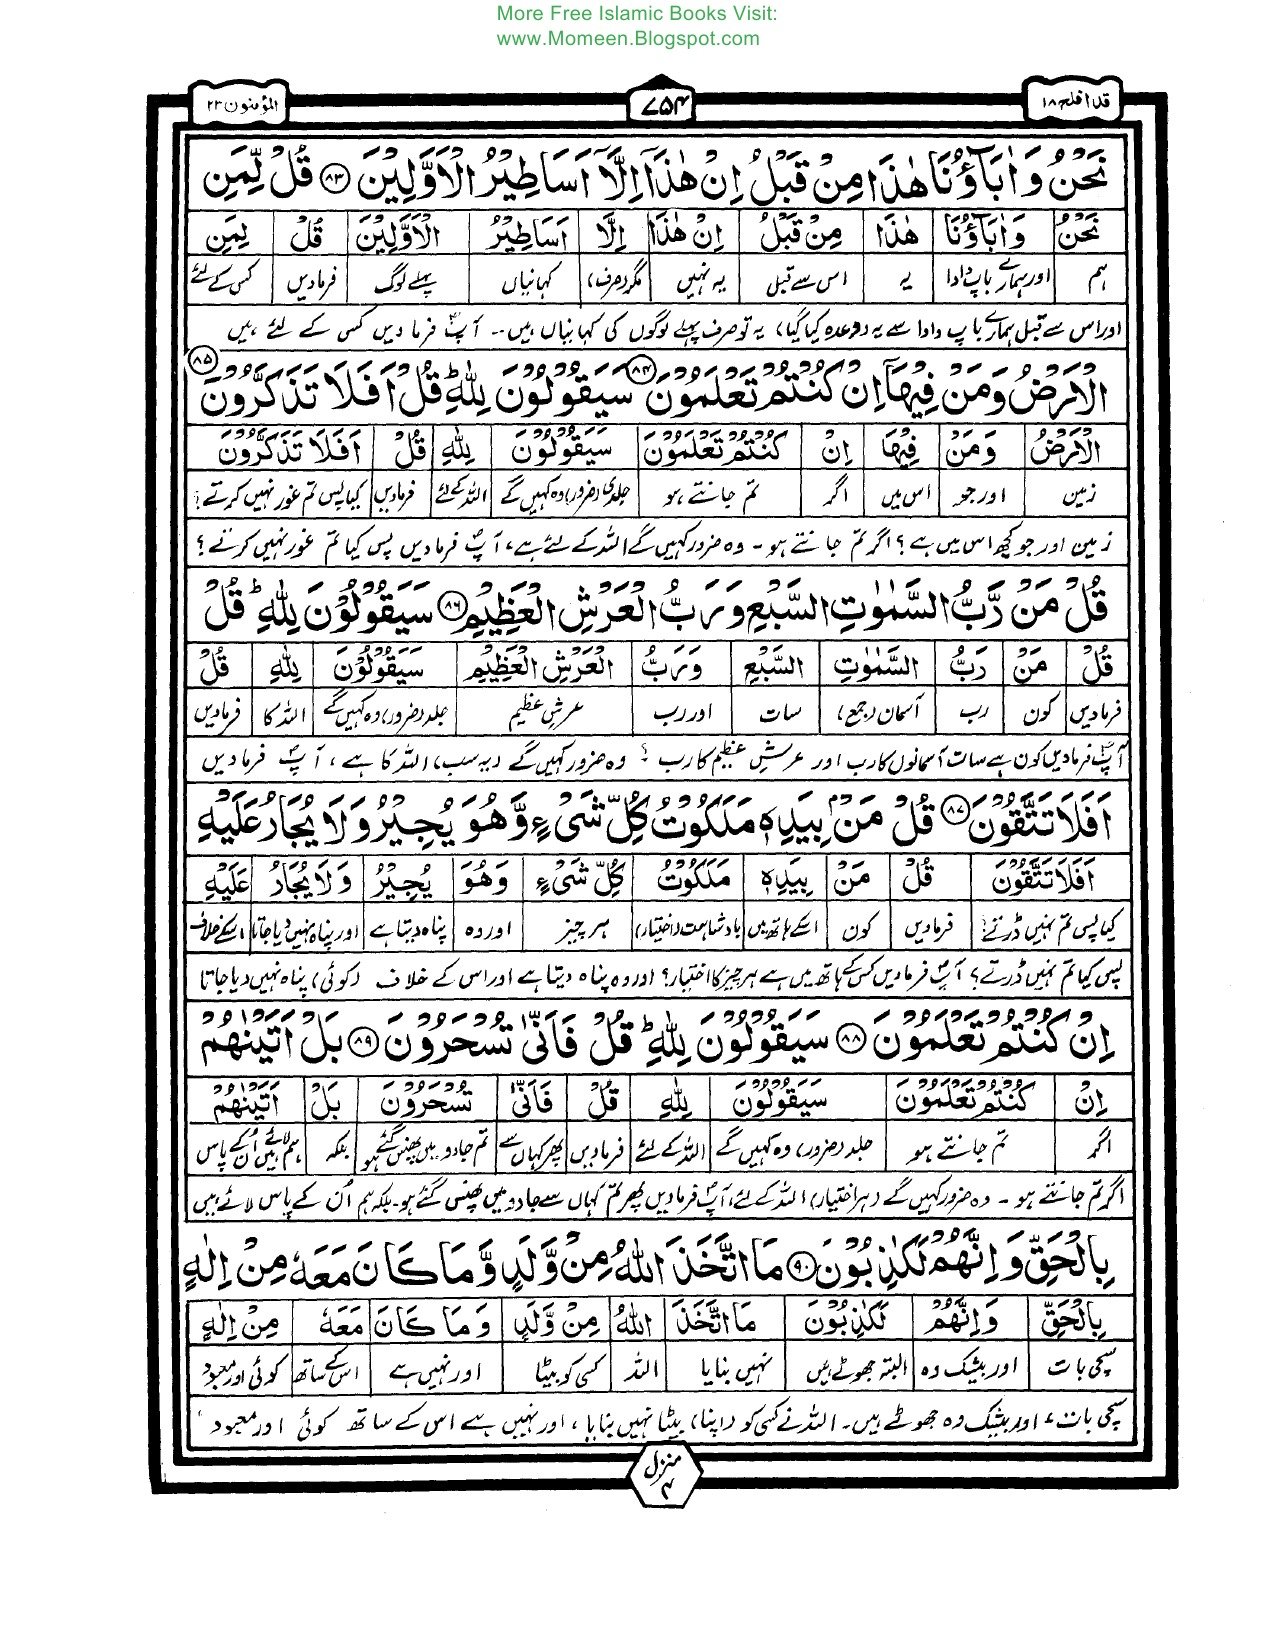 More Free Islamic Books Visit:
www.Momeen.Blogspot.com
قد افلح ۱۸
۷۵۴
المؤمنون ۲۳
نَحْنُ وَاٰبَآؤُنَا هٰذَا مِنْ قَبْلُ اِنْ هٰذَآ اِلَّآ اَسَاطِيْرُ الْاَوَّلِيْنَ ۸۳ قُلْ لِّمَنِ
نَحْنُ وَاٰبَآؤُنَا هٰذَا مِنْ قَبْلُ اِنْ هٰذَا اِلَّا اَسَاطِيْرُ الْاَوَّلِيْنَ قُلْ لِمَنِ
ہم اور ہمارے باپ دادا یہ اس سے قبل یہ نہیں مگر (صرف) کہانیاں پہلے لوگ فرمادیں کس کے لئے
اور اس سے قبل ہمارے باپ دادا سے یہ (وعدہ کیا گیا) یہ تو صرف پہلے لوگوں کی کہانیاں ہیں -- آپؐ فرمادیں کس کے لئے ہیں
الْاَرْضُ وَمَنْ فِيْهَآ اِنْ كُنْتُمْ تَعْلَمُوْنَ ۸۴ سَيَقُوْلُوْنَ لِلّٰهِ ؕ قُلْ اَفَلَا تَذَكَّرُوْنَ ۸۵
الْاَرْضُ وَمَنْ فِيْهَا اِنْ كُنْتُمْ تَعْلَمُوْنَ سَيَقُوْلُوْنَ لِلّٰهِ قُلْ اَفَلَا تَذَكَّرُوْنَ
زمین اور جو اس میں اگر تم جانتے ہو جلدی (ضرور) وہ کہیں گے اللہ کے لئے فرمادیں کیا پس تم غور نہیں کرتے؟
زمین اور جو کچھ اس میں ہے؟ اگر تم جانتے ہو - وہ ضرور کہیں گے اللہ کے لئے ہے، آپؐ فرمادیں پس کیا تم غور نہیں کرتے؟
قُلْ مَنْ رَّبُّ السَّمٰوٰتِ السَّبْعِ وَرَبُّ الْعَرْشِ الْعَظِيْمِ ۸۶ سَيَقُوْلُوْنَ لِلّٰهِ ؕ قُلْ
قُلْ مَنْ رَبُّ السَّمٰوٰتِ السَّبْعِ وَرَبُّ الْعَرْشِ الْعَظِيْمِ سَيَقُوْلُوْنَ لِلّٰهِ قُلْ
فرمادیں کون رب آسمان (جمع) سات اور رب عرشِ عظیم جلد (ضرور) وہ کہیں گے اللہ کا فرمادیں
آپؐ فرمادیں کون ہے سات آسمانوں کا رب اور عرشِ عظیم کا رب؟ وہ ضرور کہیں گے (یہ سب) اللہ کا ہے، آپؐ فرمادیں
اَفَلَا تَتَّقُوْنَ ۸۷ قُلْ مَنْۢ بِيَدِهٖ مَلَكُوْتُ كُلِّ شَیْءٍ وَّهُوَ يُجِيْرُ وَلَا يُجَارُ عَلَيْهِ
اَفَلَا تَتَّقُوْنَ قُلْ مَنْ بِيَدِهٖ مَلَكُوْتُ كُلِّ شَیْءٍ وَهُوَ يُجِيْرُ وَلَا يُجَارُ عَلَيْهِ
کیا پس تم نہیں ڈرتے؟ فرمادیں کون اسکے ہاتھ میں بادشاہت (اختیار) ہر چیز اور وہ پناہ دیتا ہے اور پناہ نہیں دیا جاتا اسکے خلاف
پس کیا تم نہیں ڈرتے؟ آپؐ فرمادیں کس کے ہاتھ میں ہے ہر چیز کا اختیار؟ اور وہ پناہ دیتا ہے اور اس کے خلاف (کوئی) پناہ نہیں دیا جاتا
اِنْ كُنْتُمْ تَعْلَمُوْنَ ۸۸ سَيَقُوْلُوْنَ لِلّٰهِ ؕ قُلْ فَاَنّٰی تُسْحَرُوْنَ ۸۹ بَلْ اَتَيْنٰهُمْ
اِنْ كُنْتُمْ تَعْلَمُوْنَ سَيَقُوْلُوْنَ لِلّٰهِ قُلْ فَاَنّٰی تُسْحَرُوْنَ بَلْ اَتَيْنٰهُمْ
اگر تم جانتے ہو جلد (ضرور) وہ کہیں گے اللہ کے لئے فرمادیں پھر کہاں سے تم جادو میں پھنس گئے ہو بلکہ ہم لائے ہیں اُن کے پاس
اگر تم جانتے ہو - وہ ضرور کہیں گے (ہر اختیار) اللہ کے لئے، آپؐ فرمادیں پھر تم کہاں سے جادو میں پھنس گئے ہو۔ بلکہ ہم اُن کے پاس لائے ہیں
بِالْحَقِّ وَاِنَّهُمْ لَكٰذِبُوْنَ ۹۰ مَا اتَّخَذَ اللّٰهُ مِنْ وَّلَدٍ وَّمَا كَانَ مَعَهٗ مِنْ اِلٰهٍ
بِالْحَقِّ وَاِنَّهُمْ لَكٰذِبُوْنَ مَا اتَّخَذَ اللّٰهُ مِنْ وَّلَدٍ وَمَا كَانَ مَعَهٗ مِنْ اِلٰهٍ
سچی بات اور بیشک وہ البتہ جھوٹے ہیں نہیں بنایا اللہ کسی کو بیٹا اور نہیں ہے اس کے ساتھ کوئی اور معبود
سچی بات، اور بیشک وہ جھوٹے ہیں۔ اللہ نے کسی کو (اپنا) بیٹا نہیں بنایا، اور نہیں ہے اس کے ساتھ کوئی اور معبود
منزل ۴